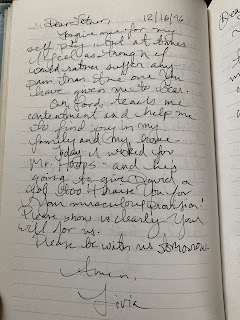 Dear Father, 12/16/96
Forgive me for my
self pity, but at times
I feel as though I
would rather suffer any
pain than the one You
have given me to bear.
Oh, Lord teach me
contentment and help me
to find joy in my
family and my hope.
Today I worked for
Mr. Hoops and he's
going to give David a
job too! Praise You for
Your miraculous provision!
Please show us clearly Your
will for us.
Please be with us tomorrow.
Amen.
Livia